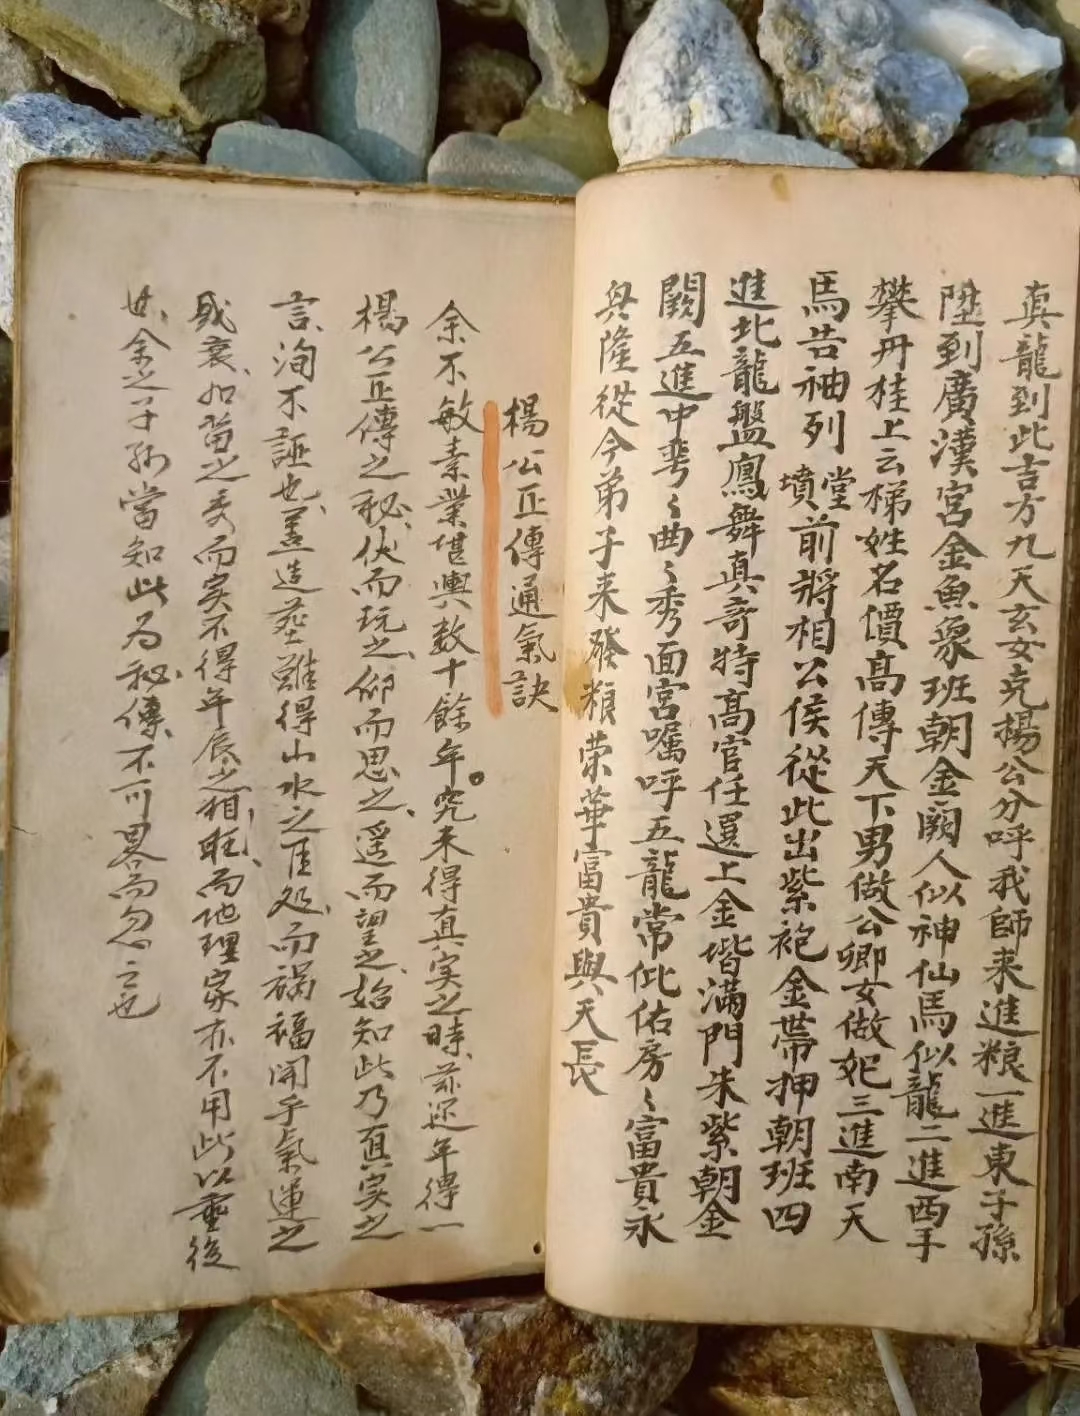 真龍到此吉方九天玄女克楊公分呼我師来進粮一進東子孫
陞到廣漢宮金魚象班朝金闕人似神仙馬似龍二進西手
攀丹桂上云梯姓名價高傳天下男做公卿女做妃三進南天
馬告袖列墳堂前將相公侯從此出紫袍金帶押朝班四
進北龍盤鳳舞真奇特高官任還上金堦滿門朱紫朝金
闕五進中彎〻曲〻秀面宮囑呼五龍常佌佑房〻富貴永
興隆從今弟子来發粮荣華富貴與天長
楊公正傳通氣訣
余不敏素業堪輿数十餘年究未得真实之時兹迩年得一
楊公正傳之秘伏而玩之仰而思之遥而望之始知此乃真实之
言洵不誣也盖造塟雖得山水之佳处而禍福開乎氣運之
盛衰如苗之秀而实不得年辰之相旺而地理家亦不用此以重後
世余之子孫當知此为秘傳不可畧而忽之也